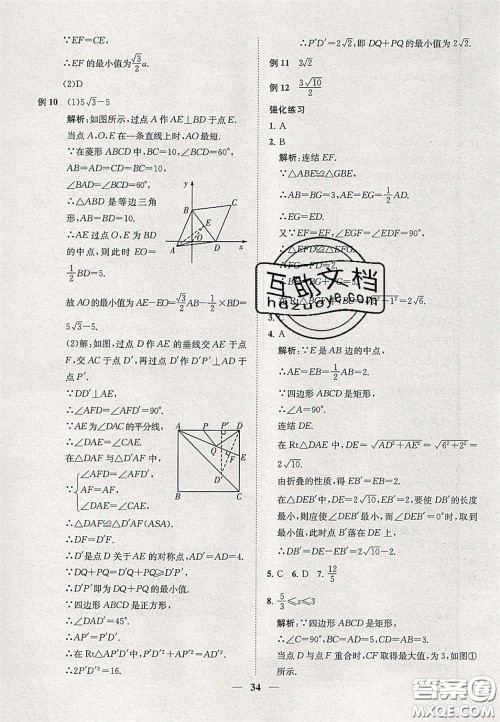 ∵EF=CE,
∴EF的最小值为√3/2 a.
(2)D
例10 (1)5√3-5
解析:如图所示,过点A作AE⊥BD于点E.
当点A,O,E在一条直线上时,AO最短.
∵在菱形ABCD中,BC=10,∠ABC=60°,
∠BAD=∠BCD=60°,
∴△ABD是等边三角
形,AD=BC=10.
∴AE过点O且E为BD
的中点,则此时EO=
1/2 BD=5.
故AO的最小值为AE-EO=√3/2 BD-1/2 BD=
5√3-5
(2)解析:过点D作AE的垂线交AE于点
F,交AC于点D′,再过点D′作D′P′⊥AD于
点P′.
∵DD′⊥AE,
∴∠AFD=∠AFD′=90°.
∵AE为∠DAC的平分线,
∴∠DAE=∠CAE.
在△DAF与△D′AF中,
∠AFD=∠AFD′,
∵ AF=AF,
∠DAE=∠CAE,
∴△DAF≌△D′AF(ASA).
∴DF=D′F.
∴D′是点D关于AE的对称点,AD′=AD=4.
∵DQ+PQ=D′Q+PQ≥D′P′,
∴D′P′即为DQ+PQ的最小值.
∵四边形ABCD是正方形,
∴∠DAD′=45°.
∴在Rt△AP′D′中,∠AP′D′=90°.
∴2P′D′²=16.
y
B
C
E
O
A
D
x
A
P
P′
D
Q
F
E
D′
B
C
∴P′D′=2√2,即DQ+PQ的最小值为2√2.
例11 2√2
例12 3√10/2
强化练习
1. A
2. B
解析:连结EF.
∵△ABE≌△GBE,
∴AB=BG=3,AE=EG=1/2 AD.
又∵EF=EF,∠EGF=∠EDF=90°,
∴△EFD≌△EFG.
4. A
解析:∵E是AB边的中点,
∴AE=EB=1/2 AB=2.
∵四边形ABCD是矩形,
∴∠A=90°.
在Rt△DAE中,DE=√(AD²+AE²)=√(6²+2²)
=2√10.
由折叠的性质,得EB′=EB=2.
在△DEB′中,DE=2√10,要使DB′的长度
最小,则应使∠DEB′最小.当∠DEB′=0°时
最小,则实际的点B′落在DE上.
∴DB′=DE-EB′=2√10-2.
5. C 6. D 7. 12/5
8. 5/3≤x≤3
解析:∵四边形ABCD是矩形,
∴∠C=90°,BC=AD=5,CD=AB=3.
当点D与点F重合时,CF取得最大值,为3,如图①
所示.
互助文档
hazuoye.com
34
答案圈
MXQE.COM